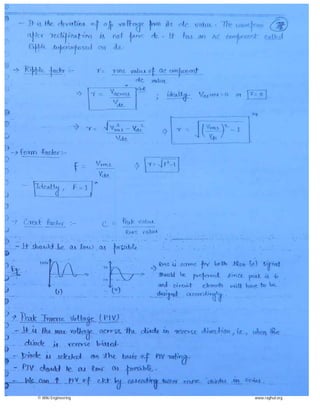 - It is the deviation of o/p voltage from its dc value. The waveform
after rectification is not pure dc. It has an ac component called
ripple superimposed on dc.
→ Ripple factor :-
r = rms value of ac component
dc value
⇒ r = Vacrms / Vdc ; ideally Vacrms = 0 or r = 0
⇒ r = √(V²rms - V²dc) / Vdc ⇒ r = √((Vrms/Vdc)² - 1)
→ Form Factor :-
F = Vrms / Vdc ⇒ r = √(F² - 1)
Ideally, F = 1
→ Crest factor :- C = Peak value
RMS value
- It should be as low as possible
Eg. rms is same for both. Also signal
should be preferred since peak is
and circuit elements will have to be
designed accordingly.
→ Peak Inverse Voltage (PIV)
- It is the max voltage across the diode in reverse direction, i.e., when the
diode is reverse biased.
- Diode is selected on the basis of PIV rating.
- PIV should be as low as possible.
- We can ↑ PIV of ckt by cascading two or more diodes in series.
© Wiki Engineering www.raghul.org